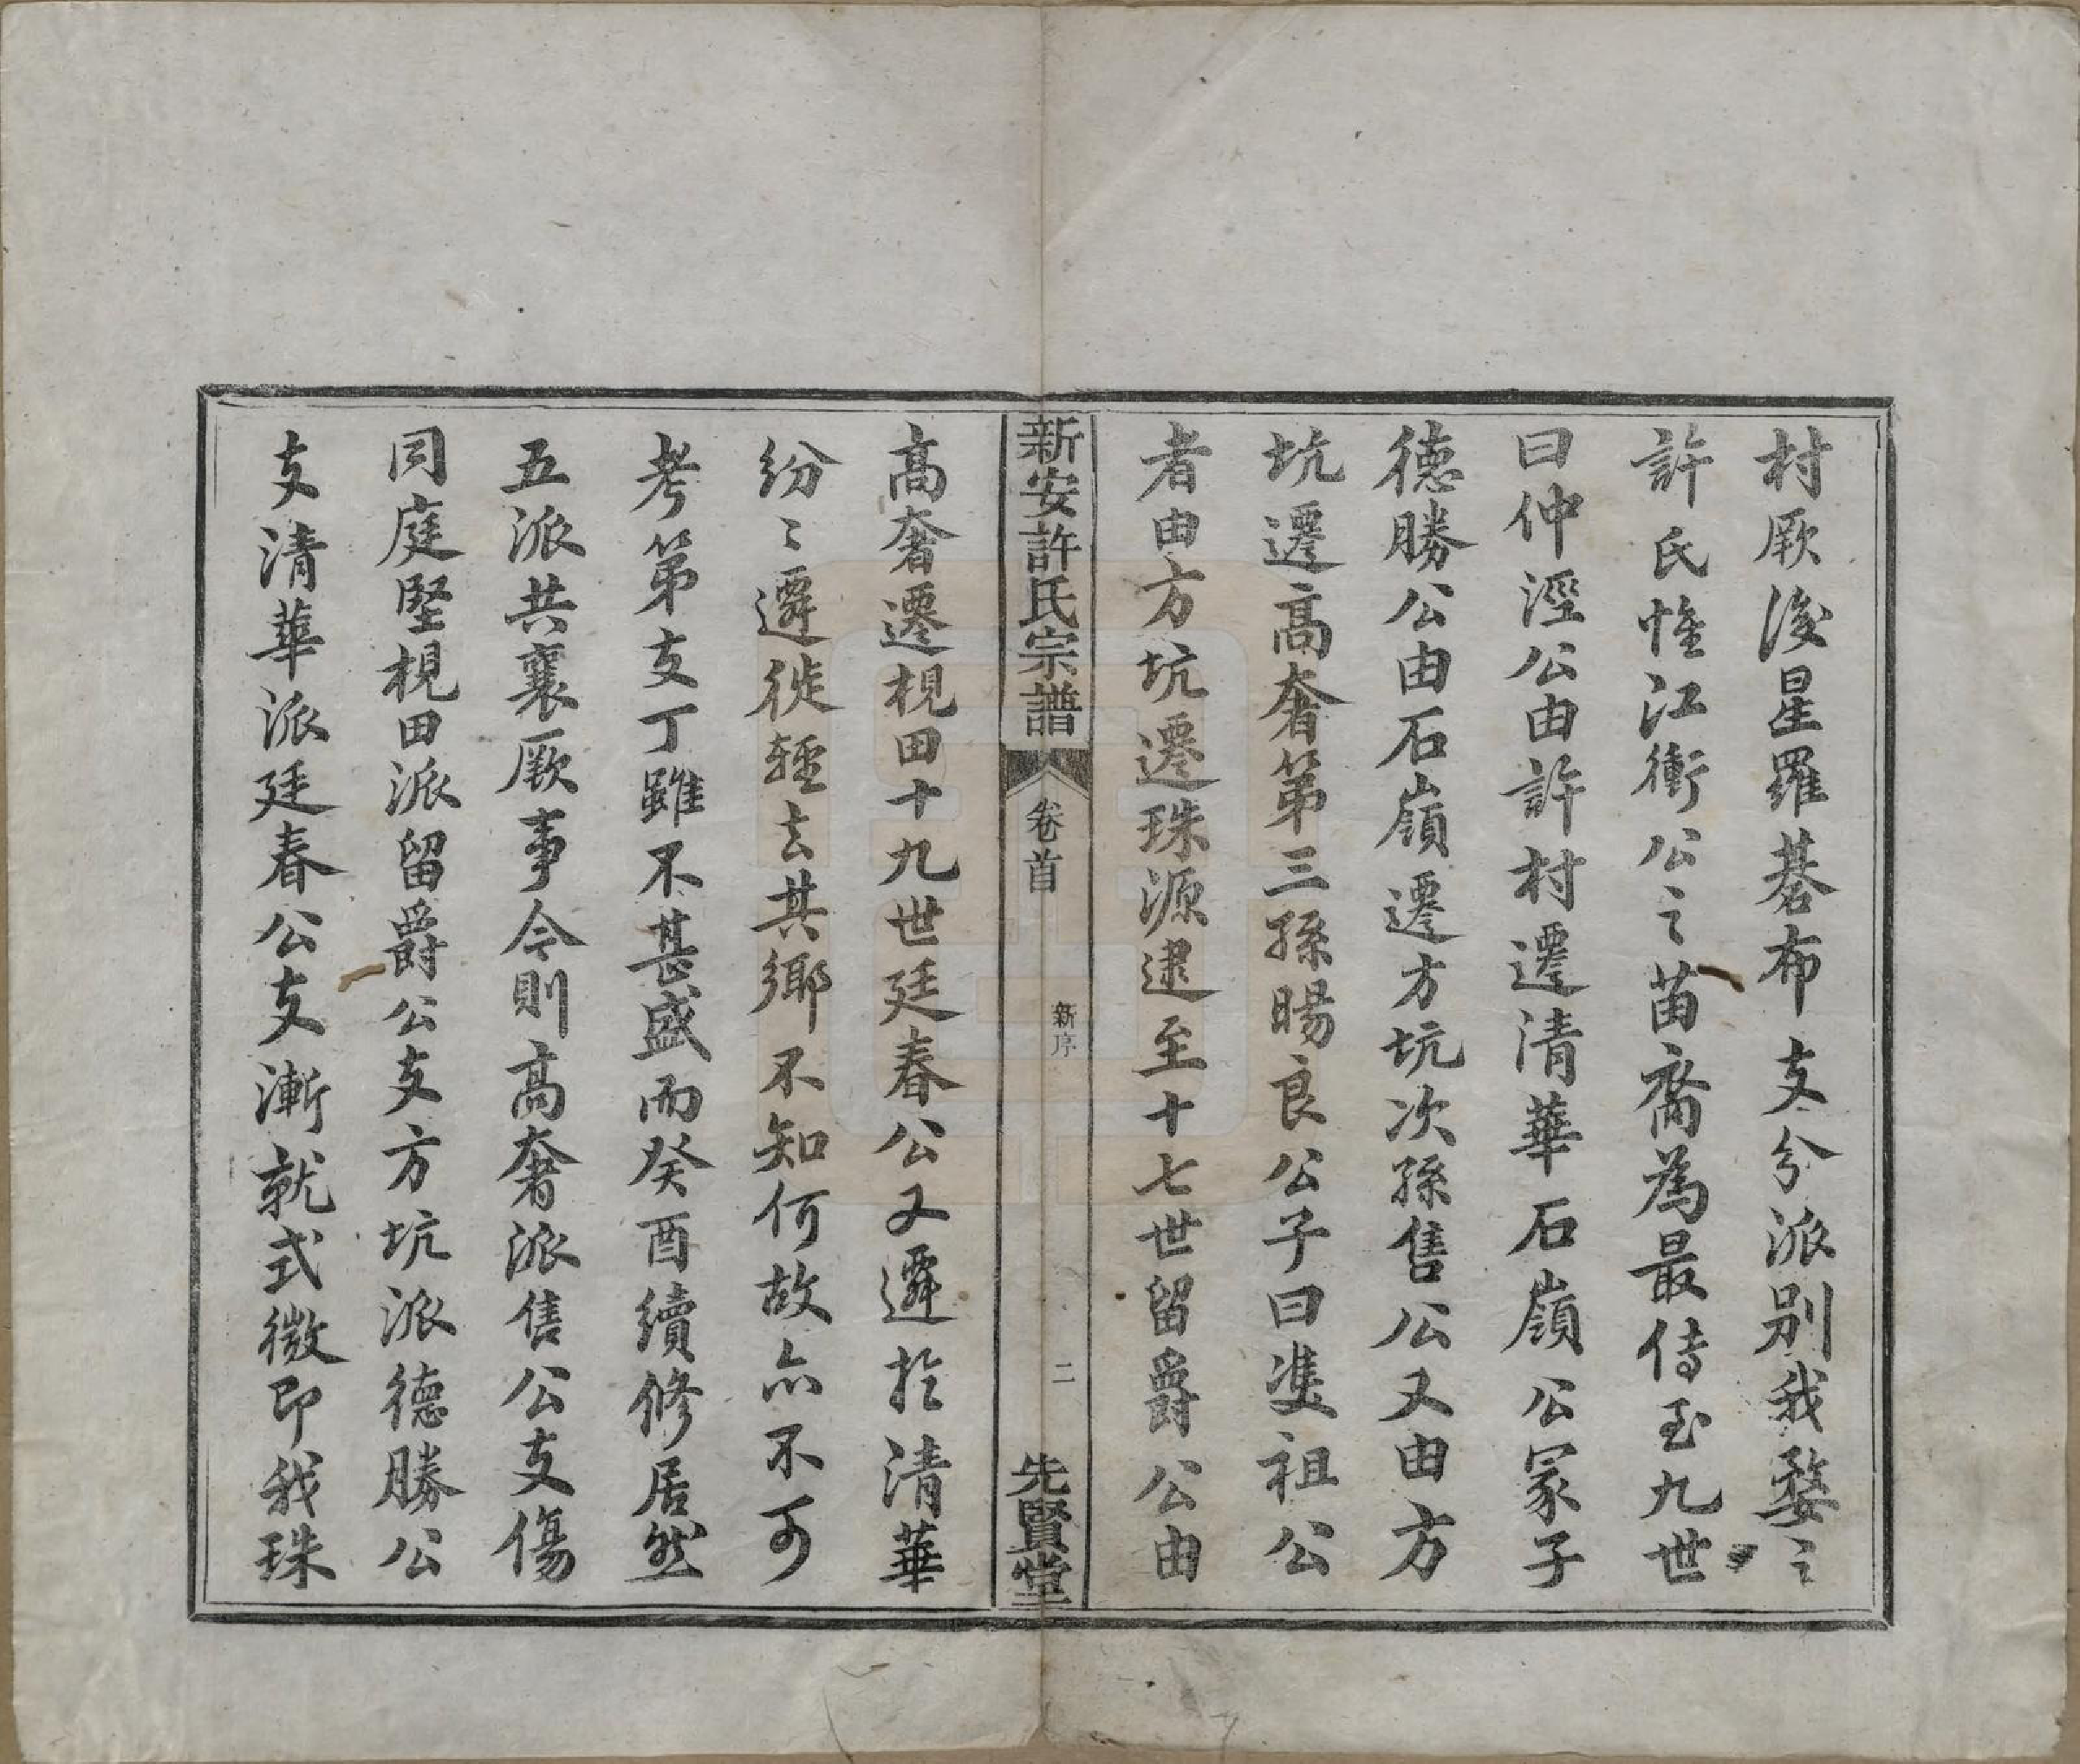 村厥後星羅碁布支分派別我婺之
許氏惟江衝公之苗裔為最傳至九世
曰仲溼公由許村遷清華石嶺公冢子
德勝公由石嶺遷方坑次孫售公又由方
坑遷高奢第三孫暘良公子曰進祖公
者由方坑遷珠源逮至十七世留爵公由
新安許氏宗譜
卷首
新序
二
先賢堂
高奢遷梘田十九世廷春公又遷於清華
紛〻遷徙輕去其鄉不知何故亦不可
考第支丁雖不甚盛而癸酉續修居然
五派共襄厥事今則高奢派售公支傷
同庭堅梘田派留爵公支方坑派德勝公
支清華派廷春公支漸就式微即我珠